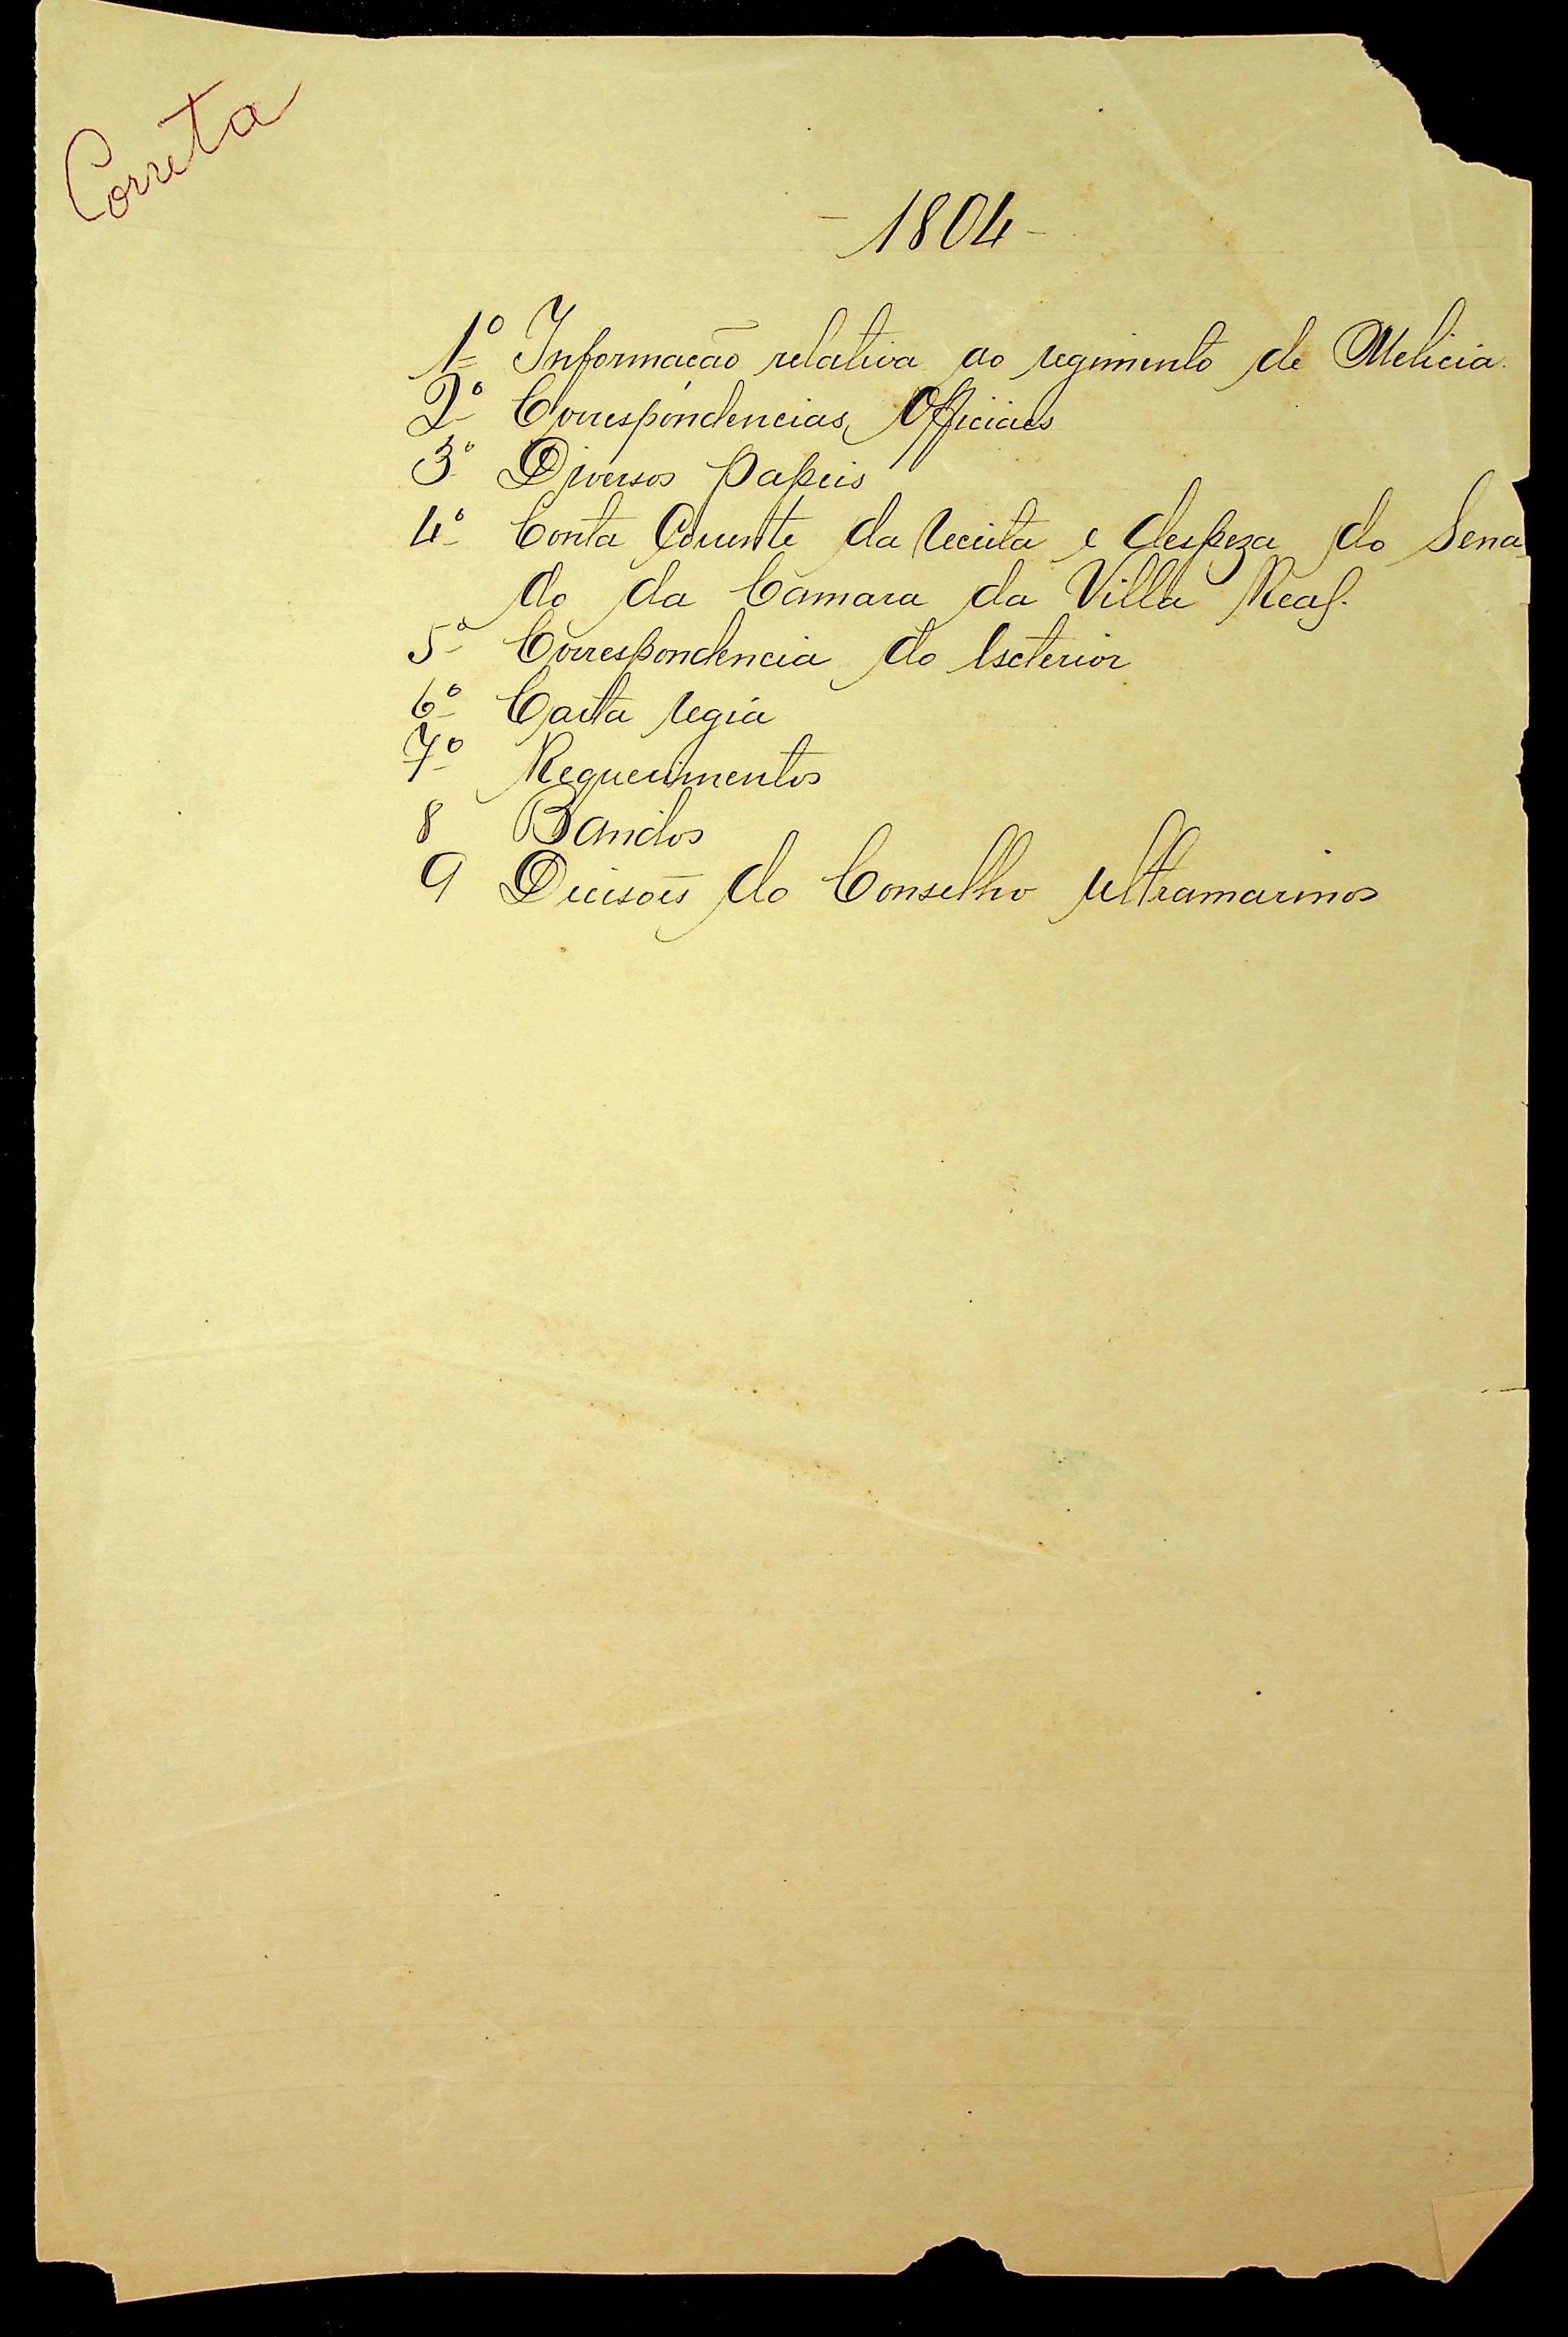 Correta
- 1804 -
1º Informação relativa ao regimento de Melicia.
2º Correspondencias Officiaes
3º Diversos papeis
4º Conta Corrente da receita e despeza do Sena
do da Camara da Villa Real.
5º Correspondencia do Iscterior
6º Carta regia
7º Requerimentos
8 Bandos
9 Decisões do Conselho ultramarinos